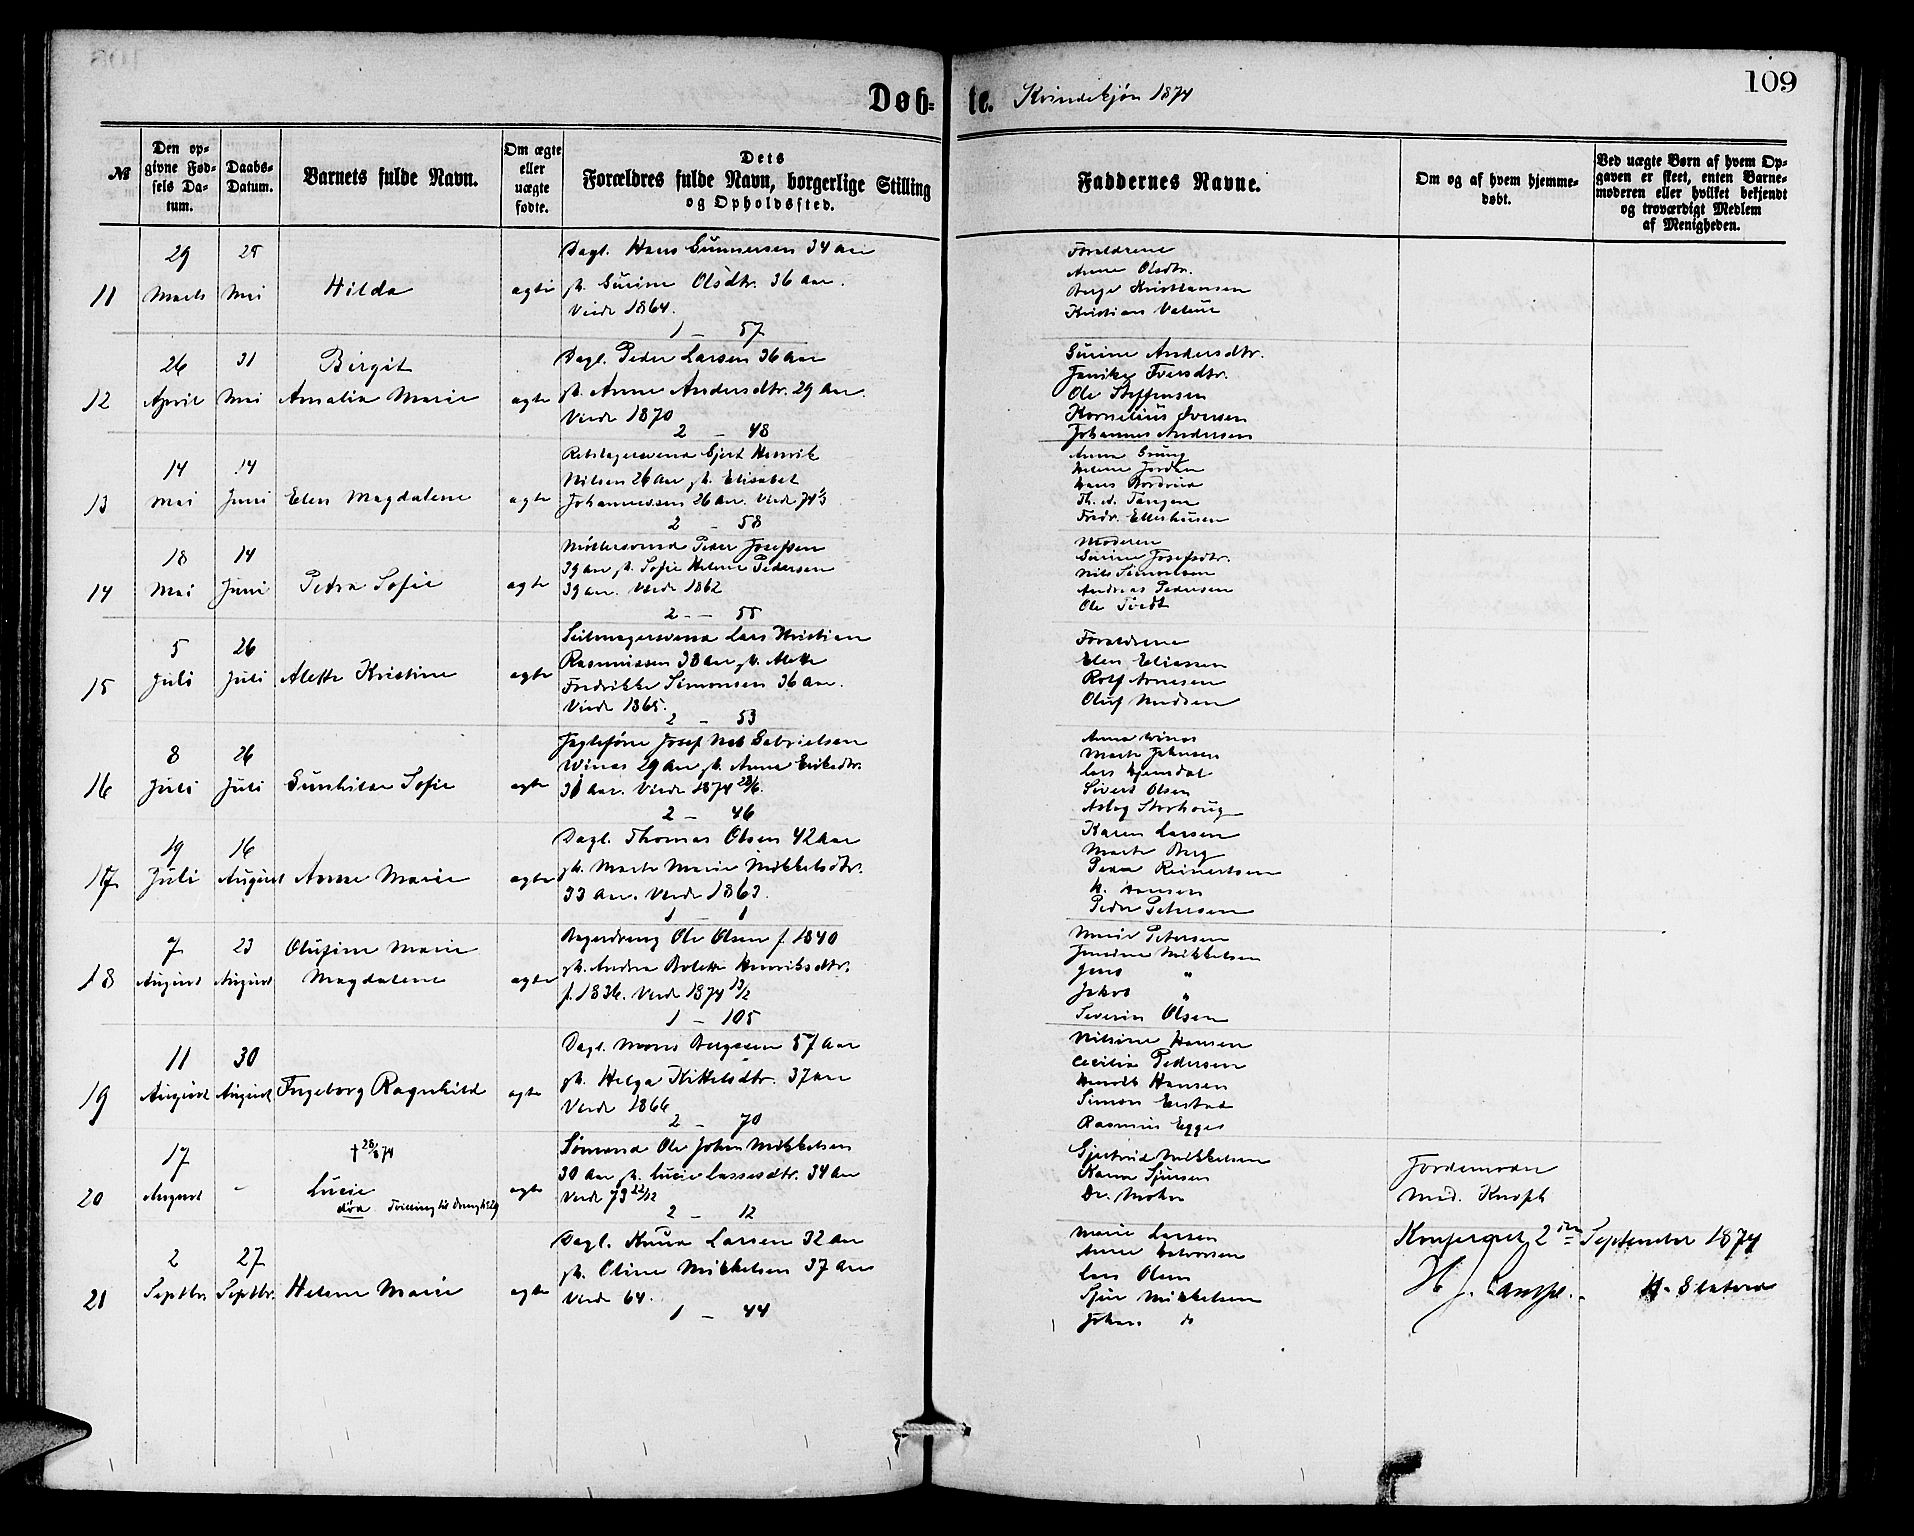 109
Døb-
te.
Kvindekjøn 1874
№
Den op-
givne Fød-
sels Da-
tum.
Daabs-
Datum.
Barnets fulde Navn.
Om ægte
eller
uægte
fødte.
Dets
Forældres fulde Navn, borgerlige Stilling
og Opholdssted.
Faddernes Navne.
Om og af hvem hjemme-
døbt.
Ved uægte Børn af hvem Op-
gaven er skeet, enten Barne-
moderen eller hvilket bekjendt
og troværdigt Medlem
af Menigheden.
11
29
Marts
25
Mai
Hilda
agte
Dagl. Hans Gunnersen 34 Aar
Gurine Olsdtr. 36 Aar.
Viede 1864.
1 – 57
Forældrene
Anne Olsdtr.
Berge Kristiansen
Kristian Valeur
12
26
April
31
Mai
Birgit
Amalia Marie
agte
Dagl. Peder Larsen 36 Aar
Anne Andersdtr. 29 Aar.
Viede 1870
2 – 48
Gurine Andersdtr.
Jenike Iversdtr.
Ole Steffensen
Kornelius Iversen
Johannes Andersen
13
14
Mai
14
Juni
Elen Magdalene
agte
Rebslagersvend Gjert Henrik
Nilsen 26 Aar Elisabet
Johannessen 26 Aar. Viede 74
2 – 58
Anna Grung
Helene Jordan
Hans
Th. Tangen
Fredr. Ellerhusen
14
18
Mai
14
Juni
Petra Sofie
agte
Møllersvend Peder Josefsen
39 Aar Sofie Helene Pedersen
39 Aar. Viede 1862
2 – 55
Moderen
Gurine Josefsdtr.
Nils Simonsen
Andreas Pedersen
Ole Tvedt
15
5
Juli
26
Juli
Alette Kristine
agte
Seilmagersvend Lars Kristian
Rasmussen 38 Aar Alette
Fredrikke Simonsen 36 Aar.
Viede 1865.
2 – 53
Forældrene
Elen Eliassen
Rolf Arnesen
Oluf Madsen
16
8
Juli
26
Juli
Gunhilda Sofie
agte
Jagtefører Josef Gabrielsen
Winas 29 Aar Anne Eriksdtr.
31 Aar. Viede 1874 28/6.
2 – 46
Anna Winas
Marte Johnsen
Lars
Sivert Olsen
Aslog Storhoug
17
19
Juli
16
August
Anne Marie
agte
Dagl. Thomas Olsen 42 Aar
Marte Marie Mikkelsdtr.
33 Aar. Viede 1863.
1 – 1
Karen Larsen
Marte Berg
Peder Reinertsen
H. Hansen
Peder Petersen
18
7
August
23
August
Olufine Marie
Magdalene
agte
Bagerdreng Ole Olsen f. 1840
Andrea Bolette Henriksdtr.
f. 1836. Viede 1874
1 – 105
Marie Petersen
Jensine Mikkelsen
Jens "
Jakob "
Severin Olsen
19
11
August
30
August
Ingeborg Ragnhild
agte
Dagl. Mons Bergesen 57 Aar
Helga Kittelsdtr. 37 Aar
Viede 1866
2 – 70
Nilsine Hansen
Cecilia Pedersen
Henrik Hansen
Simon
Rasmus Egges
20
17
August
–
† 28/8 74
Lucie
død Tvilling til Dreng №29
agte
Sømand Ole Johan Mikkelsen
30 Aar Lucie Lassesdtr. 34 Aar
Viede 73
2 – 12
Gjertrud Mikkelsen
Karen Sjursen
Dr. Mohn
Jordemoder
Mad. Knoph
21
2
Septbr.
27
Septbr.
Helene Marie
agte
Dagl. Knud Larsen 32 Aar
Oline Mikkelsen 37 Aar
Viede 64.
1 – 44
Marie Larsen
Anne Halvorsen
Lars Olsen
Sjur Mikkelsen
Johan do
Konfereret 2den September 1874